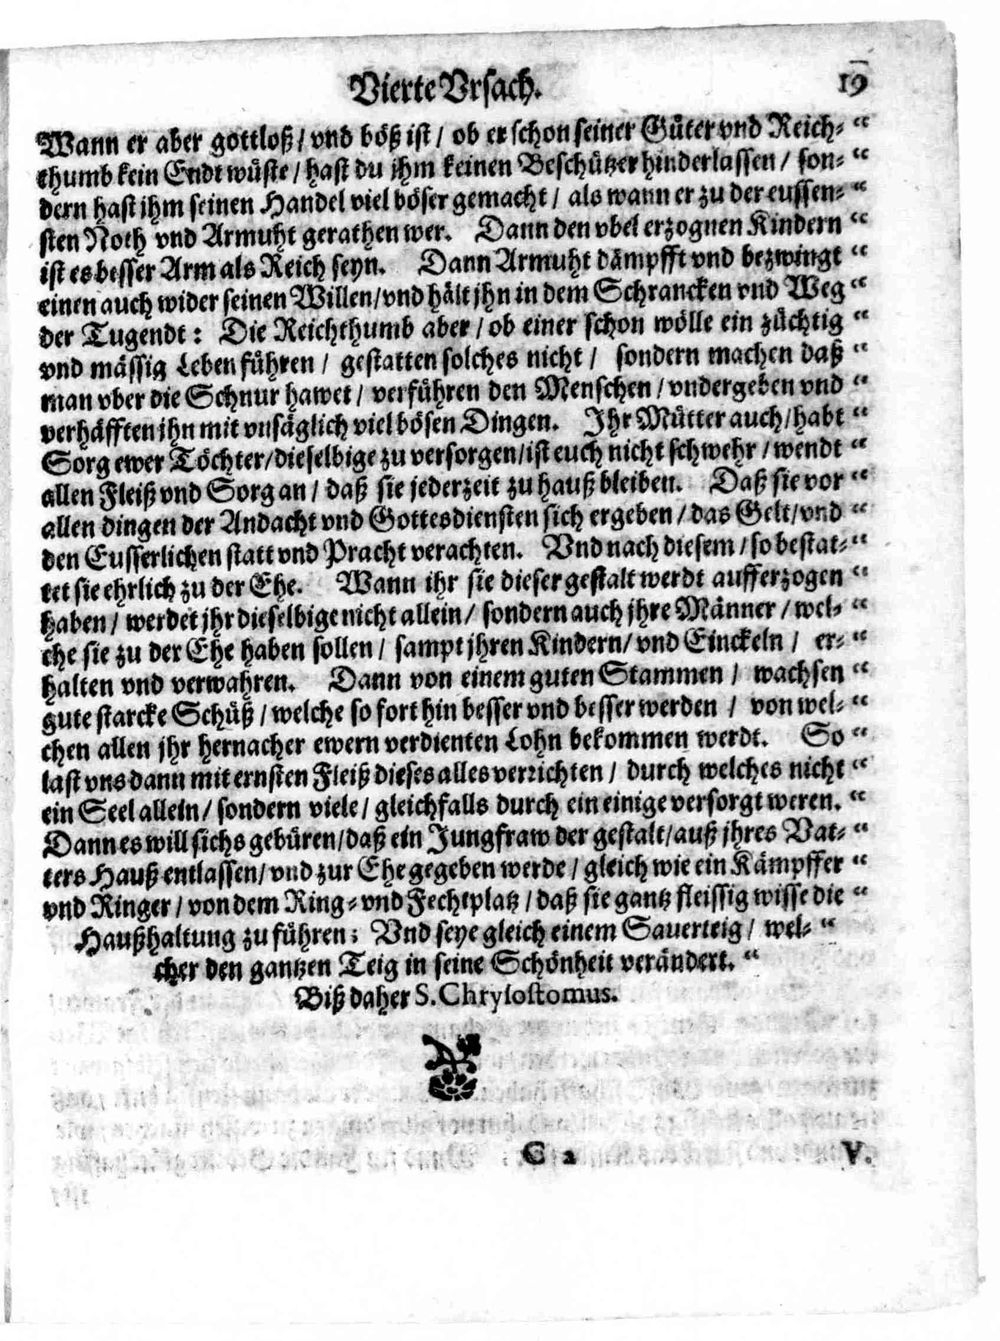 Vierte Vrsach. 19
Wann er aber gottloß / vnd böß ist / ob er schon seiner Güter vnd Reich⸗ “
thumb kein Endt wüste / hast du ihm keinen Beschützer hinderlassen / son⸗ “
dern hast ihm seinen Handel viel böser gemacht / als wann er zu der eussen⸗ “
sten Noth vnd Armuht gerathen wer. Dann den vbel erzognen Kindern “
ist es besser Arm als Reich seyn. Dann Armuht dämpfft vnd bezwingt “
einen auch wider seinen Willen / vnd hält jhn in dem Schrancken vnd Weg “
der Tugendt : Die Reichthumb aber / ob einer schon wölle ein züchtig “
vnd mässig Leben führen / gestatten solches nicht / sondern machen daß “
man vber die Schnur hawet / verführen den Menschen / vndergeben vnd “
verhäfften jhn mit vnsäglich viel bösen Dingen. Jhr Mütter auch / habt “
Sorg ewer Töchter / dieselbige zu versorgen / ist euch nicht schwehr / wendt “
allen Fleiß vnd Sorg an / daß sie jederzeit zu hauß bleiben. Daß sie vor “
allen dingen der Andacht vnd Gottesdiensten sich ergeben / das Gelt / vnd “
den Eusserlichen statt vnd Pracht verachten. Vnd nach diesem / so bestat⸗ “
tet sie ehrlich zu der Ehe. Wann ihr sie dieser gestalt werdt aufferzogen “
haben / werdet jhr dieselbige nicht allein / sondern auch jhre Männer / wel⸗ “
che sie zu der Ehe haben sollen / sampt jhren Kindern / vnd Einckeln / er⸗ “
halten vnd verwahren. Dann von einem guten Stammen / wachsen “
gute starcke Schüß / welche so fort hin besser vnd besser werden / von wel⸗ “
chen allen jhr hernacher ewern verdienten Lohn bekommen werdt. So “
last vns dann mit ernsten Fleiß dieses alles verrichten / durch welches nicht “
ein Seel allein / sondern viele / gleichfalls durch ein einige versorgt weren. “
Dann es will sichs gebüren / daß ein Jungfraw der gestalt / auß jhres Vat⸗ “
ters Hauß entlassen / vnd zur Ehe gegeben werde / gleich wie ein Kämpffer “
vnd Ringer / von dem Ring⸗ vnd Fechtplatz / daß sie gantz fleissig wisse die “
Haußhaltung zu führen : Vnd seye gleich einem Sauerteig / wel⸗ “
cher den gantzen Teig in seine Schönheit verändert. “
Biß daher S. Chrysostomus.
C 2 V.